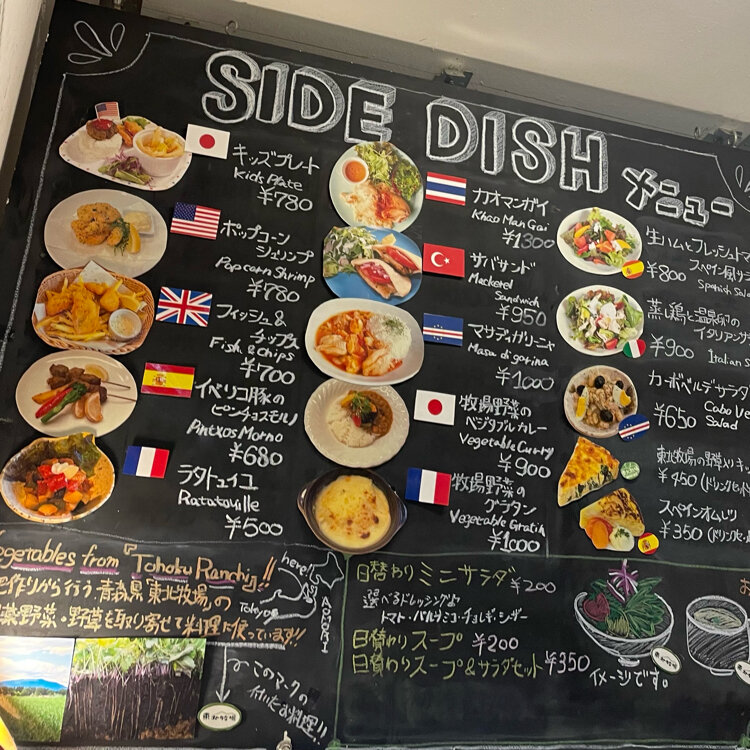 SIDE DISH メニュー
キッズプレート
Kids Plate
¥780
ポップコーン
シュリンプ
Popcorn Shrimp
¥780
フィッシュ&
チップス
Fish & Chips
¥700
イベリコ豚の
ピンチョスモルノ
Pintxos Morno
¥680
ラタトゥイユ
Ratatouille
¥500
カオマンガイ
Khao Man Gai
¥1300
サバサンド
Mackerel
Sandwich
¥950
マサディガリーニャ
Masa di garina
¥1000
牧場野菜の
ベジタブルカレー
Vegetable Curry
¥900
牧場野菜の
グラタン
Vegetable Gratin
¥1000
生ハムとフレッシュトマ
スペイン風サ
¥800
Spanish Sala
蒸し鶏と温泉卵の
イタリアンサ
¥900
Italian S
カーボベルデサラダ
¥650
Cabo Ve
Salad
東北牧場の野菜入りキ
¥450(ドリンクセット
スペインオムレツ
¥350(ドリンクセ
Vegetables from "Tohoku Ranch"!!
作りから行う青森県東北牧場の
菜野菜・野草を取り寄せて料理に使っています!!
here!!
AOMORI
TOKYO
このマークの
付いたお料理!!
東北牧場
日替わりミニサラダ ¥200
選べるドレッシング♪
トマト・バルサミコ・チョレギ・シーザー
日替わりスープ ¥200
日替わりスープ&サラダセット ¥350
イメージです。
お